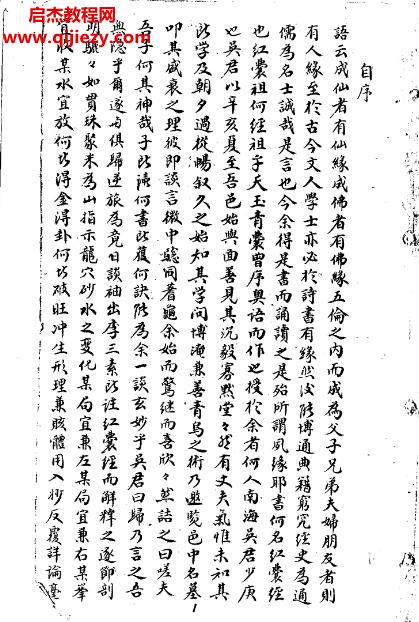 启杰教程网
qijiejc.com
自序
語云成仙者有仙緣成佛者有佛緣五倫之内而成為父子兄弟夫婦朋友者則
有人緣至於古今文人學士亦必於詩書有緣然後能博通典籍窮究經史為通
儒為名士誠哉是言也今余得是書而誦讀之是殆所謂夙緣耶書何名紅囊經
也紅囊祖何經祖乎天玉青囊曾序奥語而作也授於余者何人南海吳君少庚
也吳君以辛亥夏至吾邑始與面善見其沉毅寡默堂々然有丈夫氣惟未知其
所学及朝夕過從暢叙久之始知其学問博淹兼善青烏之術乃遨覧邑中名墓
叩其盛衰之理彼即談言微中驗同蓍龜余始而驚継而喜欣々然詰之曰嗟夫
吾子何其神哉子所讀何書所獲何訣能為余一談玄妙乎吳君曰歸乃言之吾
與隠乎爾遂与俱歸逆旅為竟日談袖出李三素所註紅囊經而解釋之逐節剖
明驪々如貫珠聚米為山指示龍穴砂水之变化某局宜兼左某局宜兼右某峯
宜收某水宜放何所得金得卦何所破旺冲生形理兼賅體用入妙反覆詳論毫
1